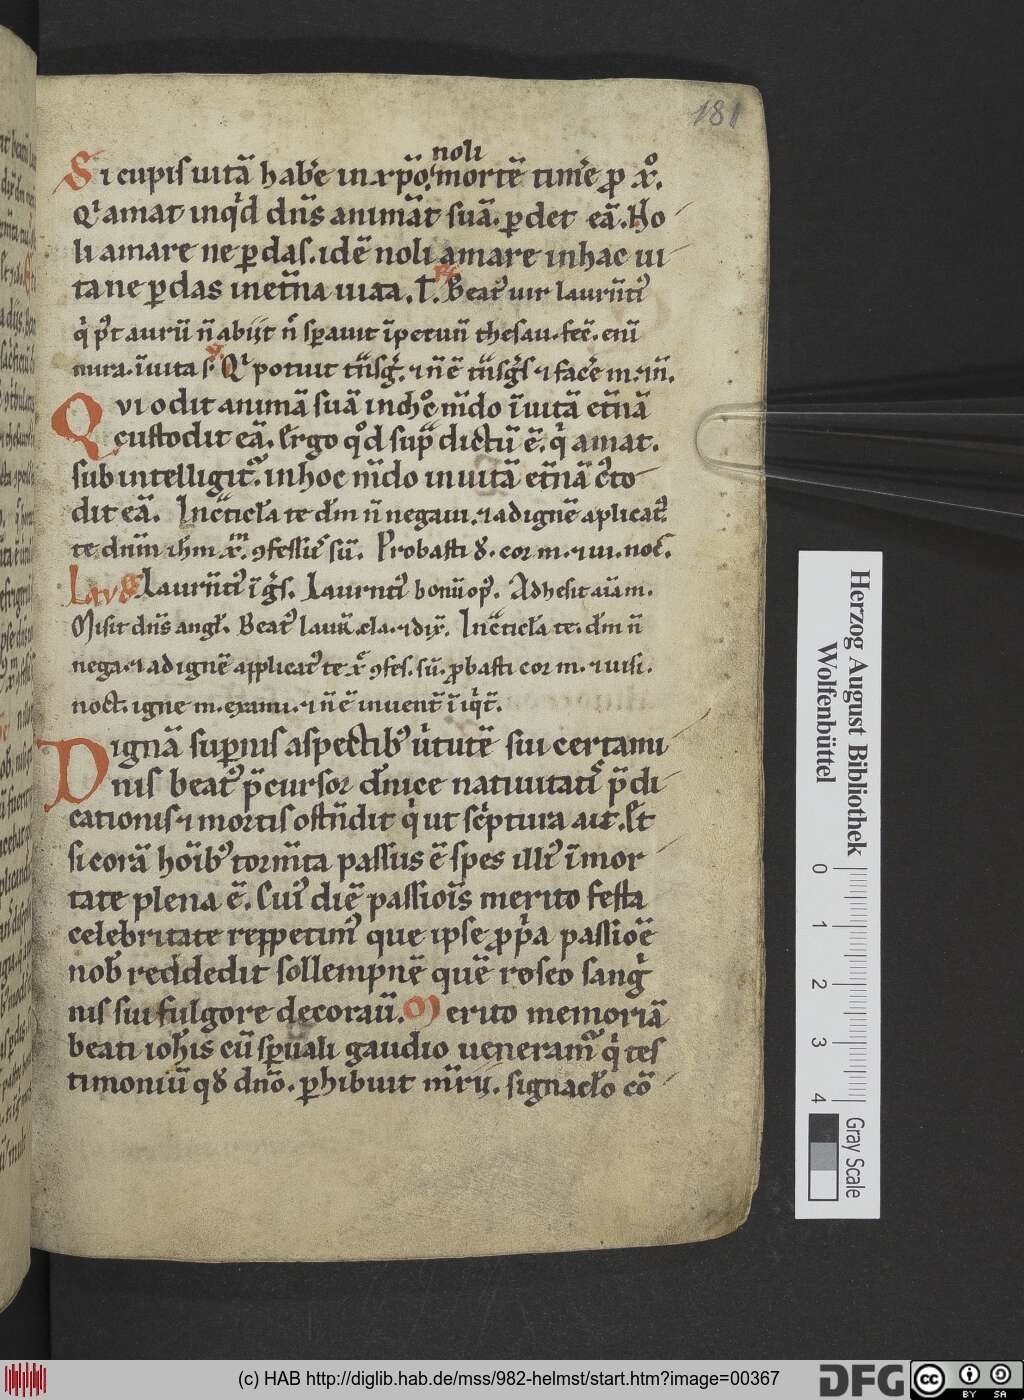 181
noli
Si cupis uitā habe̅ in xp̄o. mortē time̅ p̱ xo̅.
Qi amat inqͥd dn̄s animā suā. p̱det eā. Ho
li amare ne p̱das. idē noli amare in hac ui
ta ne p̱das in et̄na uita. T. R̷ Beatꝰ uir laurn̄tiꝰ
qͥ p̄t aurū n̄ abijt n̄ sp̱auit ī petun̄ thesau. fec̄. eni̅
mira. ī uita sͣ V̷ Qi potuit tn̄sgͥ. ⁊ n̄ ē tn̄sgͥs ⁊ face̅ m. ⁊ n̄.
Qvi odit animā suā in hoc̄ mn̄do ī uitā et̄nā
custodit eā. Ergo qd̄ sup̱ dictū ē. qͥ amat.
sub intelligit᷑. in hoc mn̄do in uitā et̄nā c̄to
dit eā. In c̄ticl̄a te dm̄ n̄ negaui. ⁊ ad ignē aplicatꝰ
te dn̄m ihm x̄m ꝯfessuꝰ su̅. Probasti d̄. cor m. ⁊ ui. noc̄.
Lavd̄ Laurn̄tiꝰ ī gͥs. Laurn̄tiꝰ bonū opꝰ. Adhesit aīa m.
Misit dn̄s angl̄. Beatꝰ laur̄. cla. ⁊ dix̄. In c̄ticl̄a te. dm̄ n̄
nega. ⁊ ad ignē applicatꝰ te x̄ ꝯfes. su̅. p̱basti cor m. ⁊ uisi.
noct. igne m. exami. ⁊ n̄ ē inuent̄ ī iqͥt̄.
Dignā sup̱nis aspectibꝰ uͥtutē sui certami
nis beatꝰ p̄cursor dn̄ice natiuitatiꝰ p̄di
cationis ⁊ mortis ostn̄dit qͥ ut scͥptura ait. Et
si corā hoīb̅ꝰ torm̄ta passus ē spes illiꝰ īmor
tate plena ē. Cuiꝰ diē passioīs merito festa
celebritate reppetimꝰ que ipse p̱pͥa passiōe
nob̄ reddedit sollempnē quē roseo sangͥ
nis sui fulgore decorau̅. Merito memoriā
beati ioh̄is cū sp̱uali gaudio ueneram᷑ qͥ tes
timoniū qd̄ dn̄o. p̱hibuit mr̄ij. signacl̄o cō
Herzog August Bibliothek
Wolfenbüttel
0 1 2 3 4
Gray Scale
(c) HAB http://diglib.hab.de/mss/982-helmst/start.htm?image=00367
DFG
cc BY SA